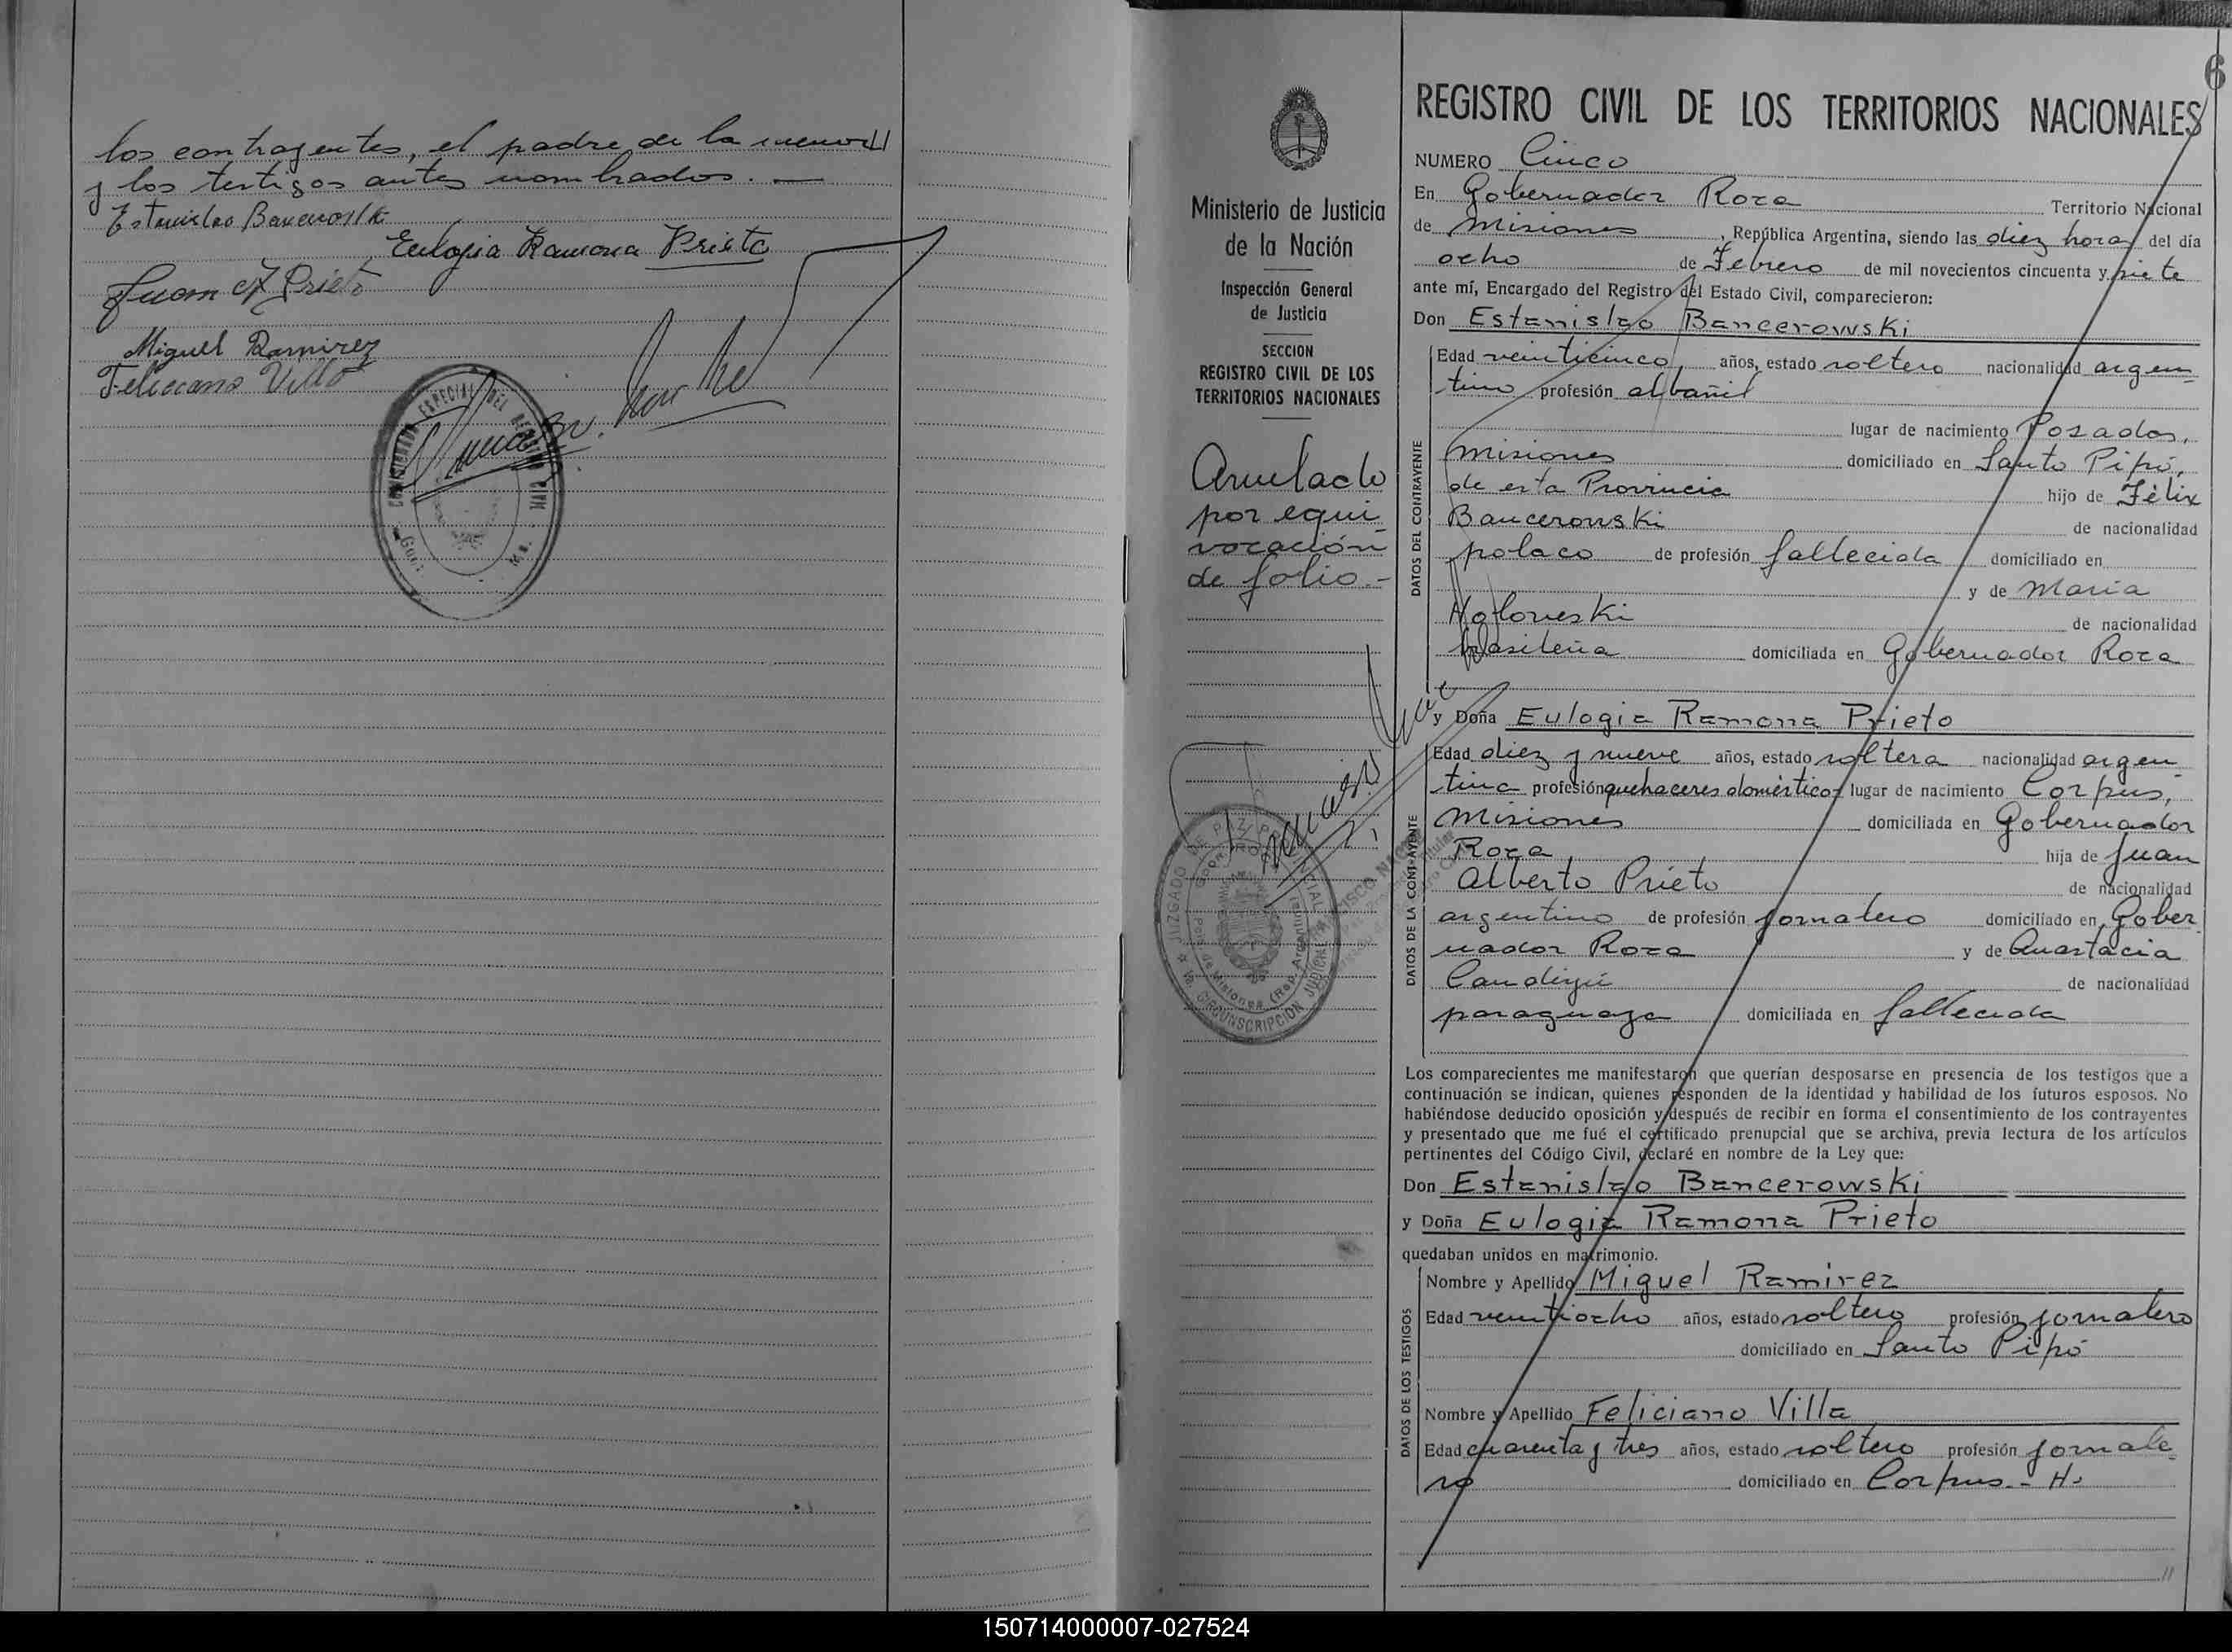 los contrayentes, el padre de la menor//
y los testigos antes nombrados. —
Estanislao Bancerowski
Eulogia Ramona Prieto
Juan A Prieto
Miguel Ramirez
Feliciano Villa
COMISIONADO ESPECIAL DEL REGISTRO CIVIL
6
Ministerio de Justicia
de la Nación
Inspección General
de Justicia
SECCION
REGISTRO CIVIL DE LOS
TERRITORIOS NACIONALES
Anulado
por equi
vocación
de folio.-
JUZGADO DE PAZ PROVINCIAL
Gdor. Roca
Pcia. de Misiones (Rep. Argentina)
CIRCUNSCRIPCION JUDICIAL
REGISTRO CIVIL DE LOS TERRITORIOS NACIONALES
NUMERO Cinco
En Gobernador Roca Territorio Nacional
de Misiones, República Argentina, siendo las diez horas del día
ocho de Febrero de mil novecientos cincuenta y siete
ante mí, Encargado del Registro del Estado Civil, comparecieron:
Don Estanislao Bancerowski
DATOS DEL CONTRAYENTE
Edad veinticinco años, estado soltero nacionalidad argen
tino profesión albañil
lugar de nacimiento Posadas,
Misiones domiciliado en Santo Pipó,
de esta Provincia hijo de Félix
Bancerowski de nacionalidad
polaco de profesión fallecida domiciliado en
y de María
Holoveski de nacionalidad
brasileña domiciliada en Gobernador Roca
y Doña Eulogia Ramona Prieto
DATOS DE LA CONTRAYENTE
Edad diez y nueve años, estado soltera nacionalidad argen
tina profesión quehaceres domésticos lugar de nacimiento Corpus,
Misiones domiciliada en Gobernador
Roca hija de Juan
Alberto Prieto de nacionalidad
argentino de profesión jornalero domiciliado en Gober
nador Roca y de Anastacia
Candiyú de nacionalidad
paraguaya domiciliada en fallecida
Los comparecientes me manifestaron que querían desposarse en presencia de los testigos que a
continuación se indican, quienes responden de la identidad y habilidad de los futuros esposos. No
habiéndose deducido oposición y después de recibir en forma el consentimiento de los contrayentes
y presentado que me fué el certificado prenupcial que se archiva, previa lectura de los artículos
pertinentes del Código Civil, declaré en nombre de la Ley que:
Don Estanislao Bancerowski
y Doña Eulogia Ramona Prieto
quedaban unidos en matrimonio.
DATOS DE LOS TESTIGOS
Nombre y Apellido Miguel Ramirez
Edad veintiocho años, estado soltero profesión jornalero
domiciliado en Santo Pipó
Nombre y Apellido Feliciano Villa
Edad cuarenta y tres años, estado soltero profesión jornale
ro domiciliado en Corpus.- H.
//
150714000007-027524